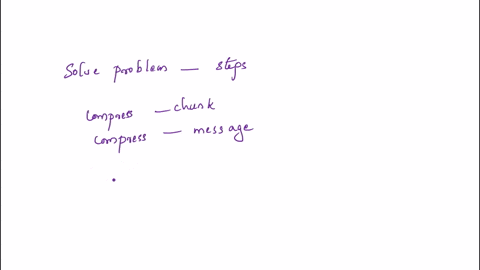 Solve problem — steps
compress — chunk
compress — message